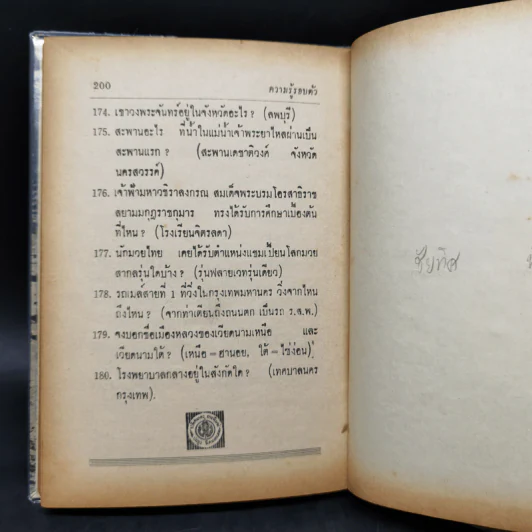 200 ความรู้รอบตัว
174. เขาวงพระจันทร์อยู่ในจังหวัดอะไร ? (ลพบุรี)
175. สะพานอะไร ที่น้ำในแม่น้ำเจ้าพระยาไหลผ่านเป็น
สะพานแรก ? (สะพานเดชาติวงค์ จังหวัด
นครสวรรค์)
176. เจ้าฟ้ามหาวชิราลงกรณ สมเด็จพระบรมโอรสาธิราช
สยามมกุฎราชกุมาร ทรงได้รับการศึกษาเบื้องต้น
ที่ไหน ? (โรงเรียนจิตรลดา)
177. นักมวยไทย เคยได้รับตำแหน่งแชมเปี้ยนโลกมวย
สากลรุ่นใดบ้าง ? (รุ่นฟลายเวทรุ่นเดียว)
178. รถเมล์สายที่ 1 ที่วิ่งในกรุงเทพมหานคร วิ่งจากไหน
ถึงไหน ? (จากท่าเตียนถึงถนนตก เป็นรถ ร.ส.พ.)
179. จงบอกชื่อเมืองหลวงของเวียดนามเหนือ และ
เวียดนามใต้ ? (เหนือ = ฮานอย, ใต้ = ไซ่ง่อน)
180. โรงพยาบาลกลางอยู่ในสังกัดใด ? (เทศบาลนคร
กรุงเทพ).